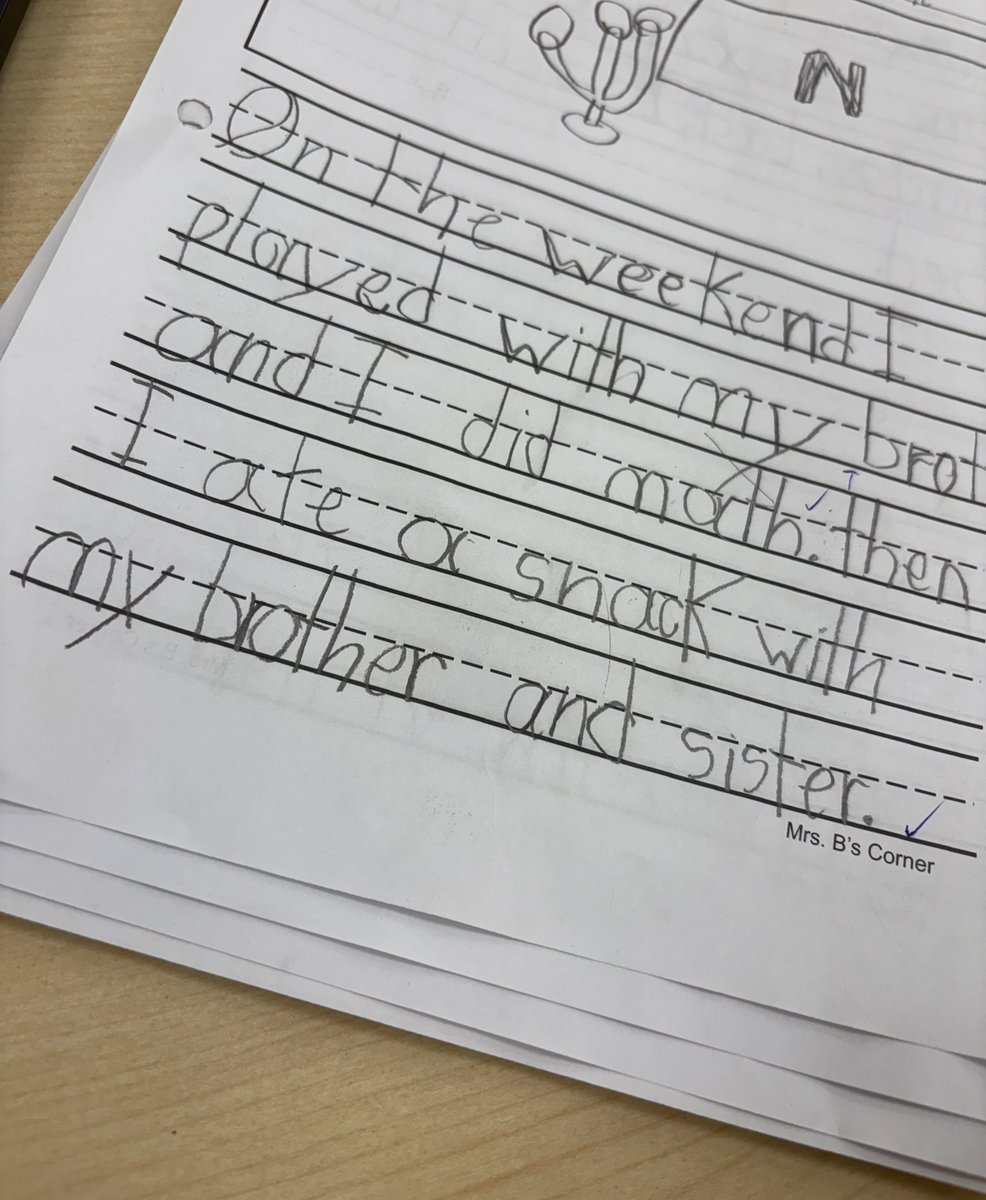 N
On the weekend I
played with my brot
and I did math. then
I ate a snack with
my brother and sister.
Mrs. B's Corner